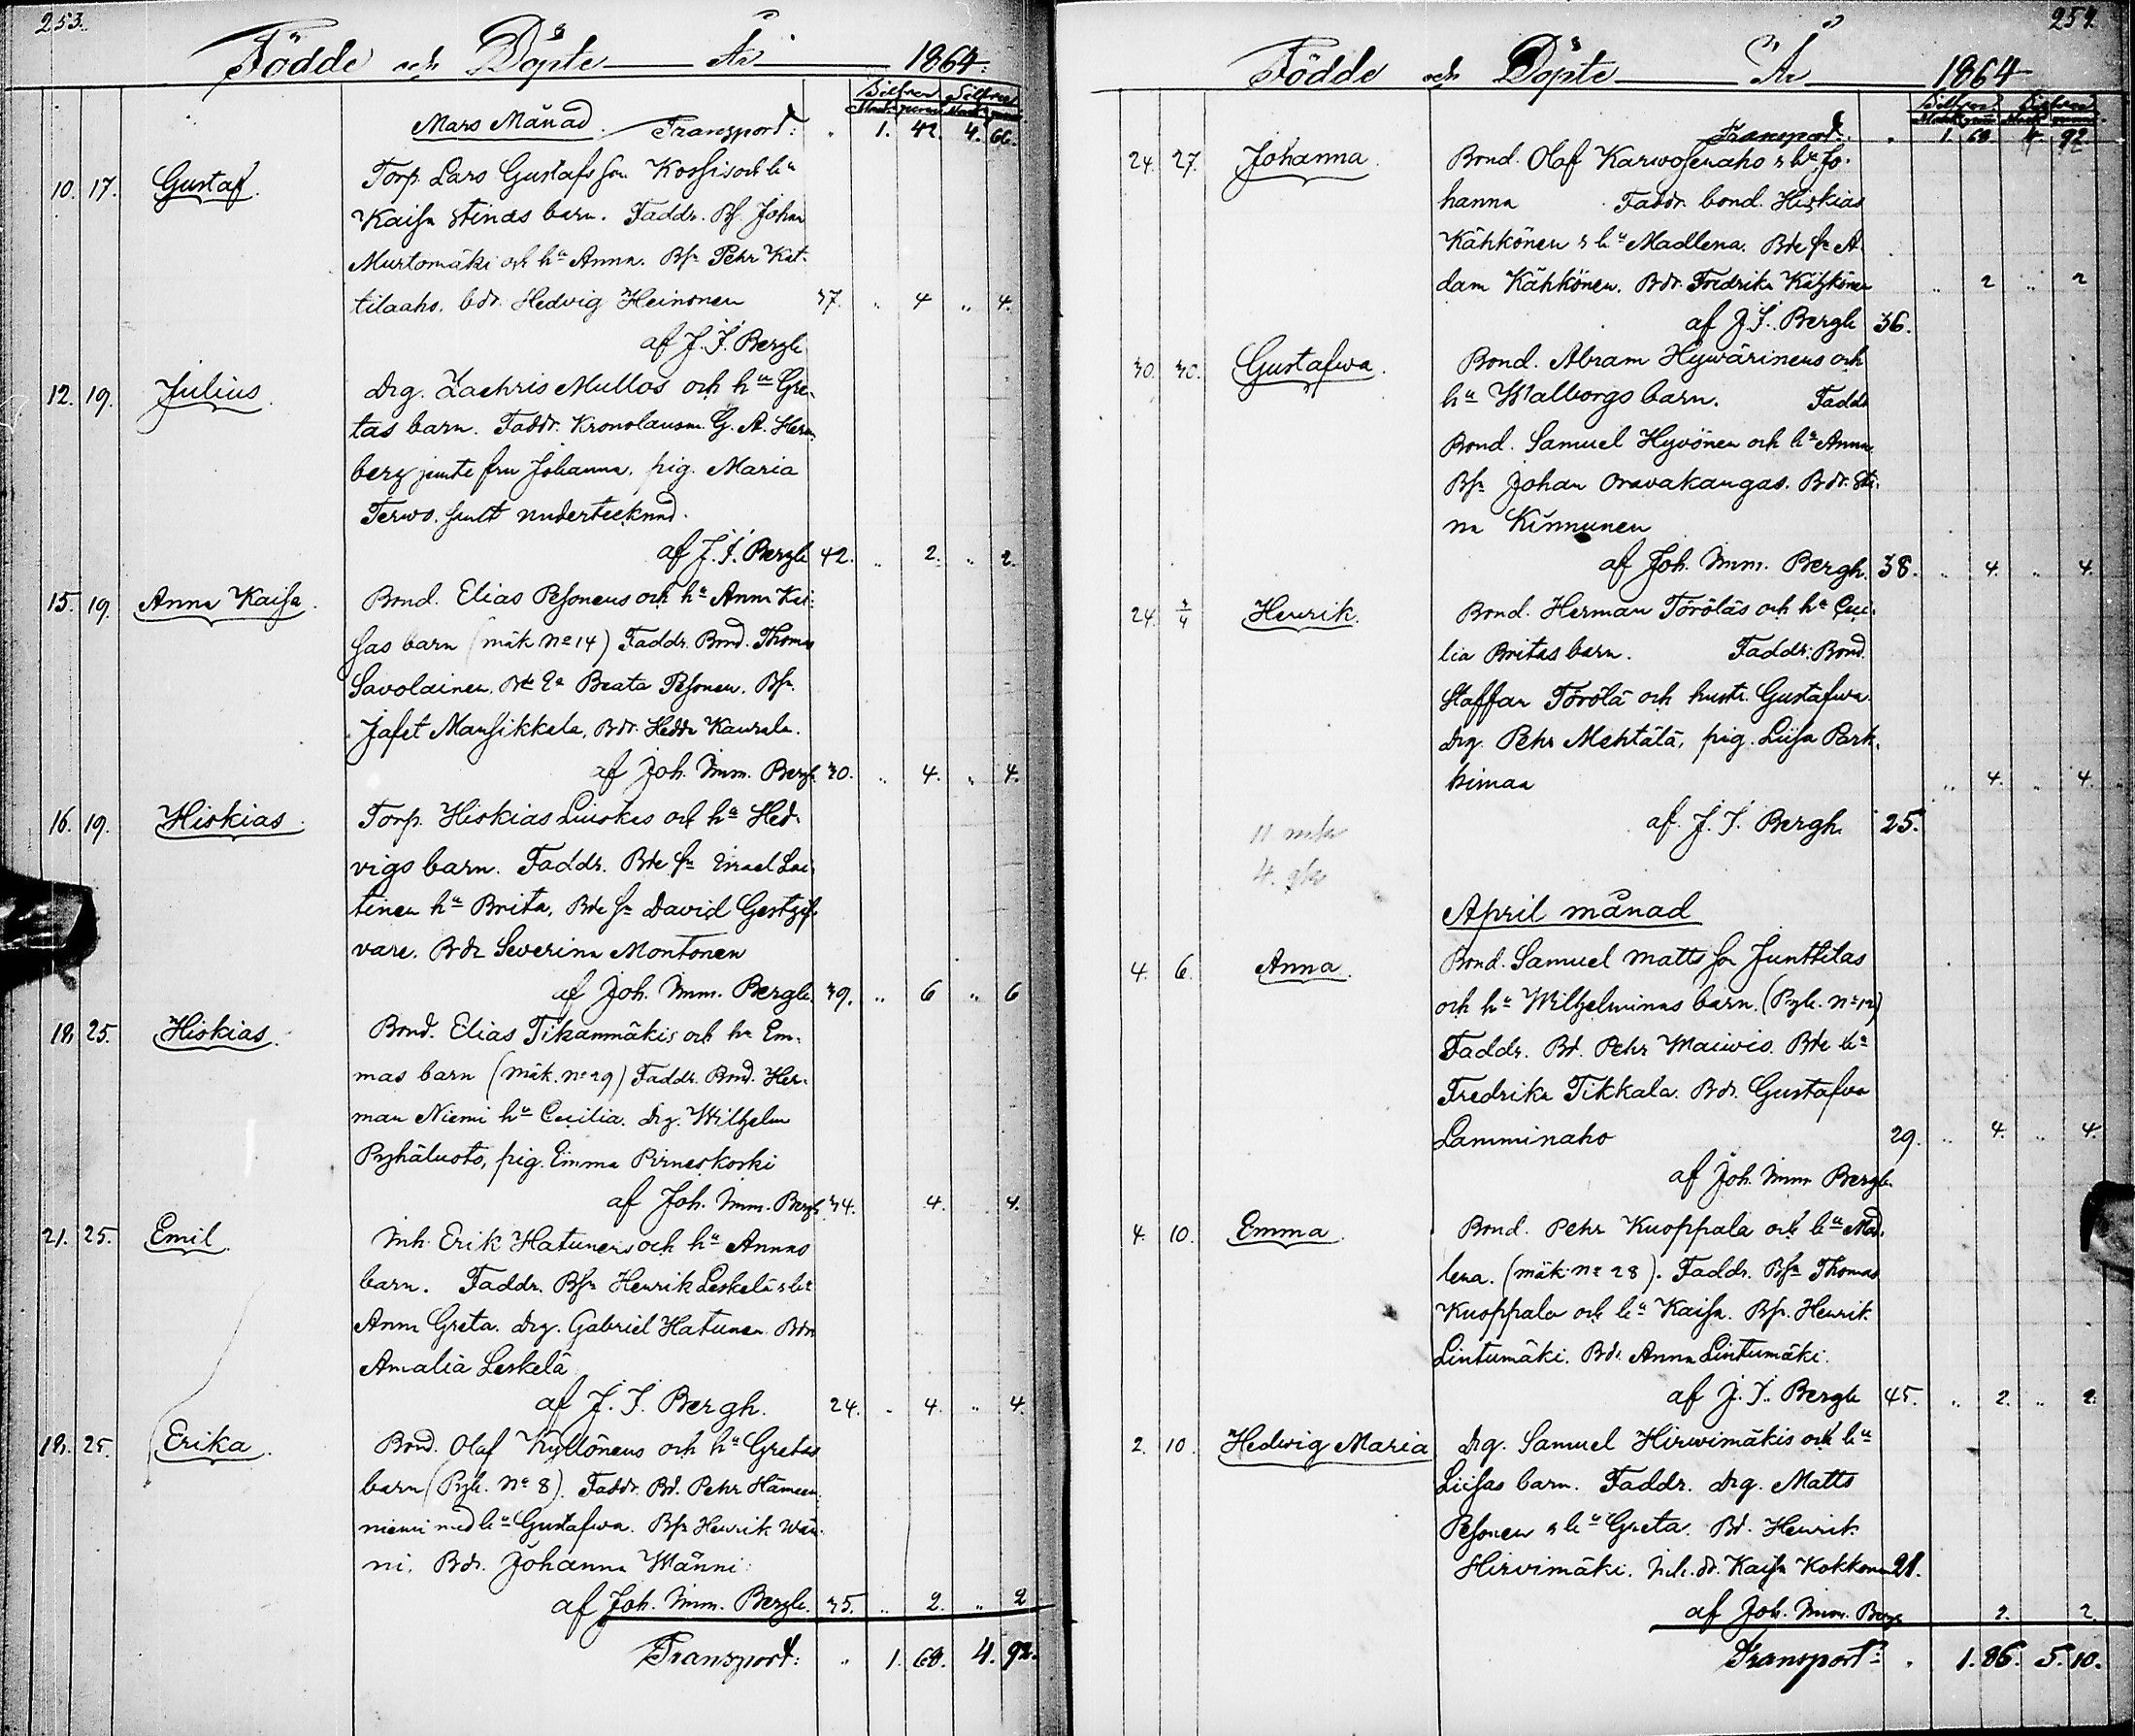 253.
Födde och Döpte År 1864.
Silfver Silfver
Mars Månad. Transport: " 1. 42. 4. 66.
10. 17. Gustaf. Torp. Lars Gustafsson Kossis och hu
Kaisa Stinas barn. Faddr. Bs. Johan
Murtomäki och hu Anna. Bsn Pehr Kat-
tilaaho, bdr. Hedvig Heinonen 37. " 4 " 4.
af J. I. Bergh
12. 19. Julius. Drg. Zachris Mullos och hu Gre-
tas barn. Faddr. Kronolänsm. G. A. Hern-
berg jemte fru Johanna, pig. Maria
Terwo, samt undertecknad.
af J. I. Bergh 42. " 2. " 2.
15. 19. Anna Kaisa. Bond. Elias Pesonens och hu Anna Kai-
sas barn (mäk No 14) Faddr. Bond. Thomas
Savolainen. Bde Ea Beata Pesonen. Bsn
Jafet Mansikkala, Bdr. Hedda Kaurala.
af Joh. Imm. Bergh. 30. " 4. " 4.
16. 19. Hiskias. Torp. Hiskias Luiskas och hu Hed-
vigs barn. Faddr. Bde sn Israel Lai-
tinen hu Brita, Bde sn David Gestgif-
vare. Bdr Severina Montonen
af Joh. Imm. Bergh. 39. " 6 " 6
18. 25. Hiskias. Bond. Elias Tikanmäkis och hu Em-
mas barn (Mäk. No 29) Faddr. Bond. Her-
man Niemi hu Cecilia. drg. Wilhelm
Pyhäluoto, pig. Emma Pirneskoski
af Joh. Imm. Bergh. 34. 4. 4.
21. 25. Emil. Inh. Erik Hatunens och hu Annas
barn. Faddr. Bsn Henrik Leskelä & hu
Anna Greta. drg. Gabriel Hatunen. Bdr
Amalia Leskelä
af J. I. Bergh. 24. " 4. " 4.
18. 25. Erika. Bond. Olaf Kyllönens och hu Gretas
barn (Pyh. No 8). Faddr. Bd. Pehr Hämeen-
niemi med hu Gustafwa. Bsn Henrik Wän-
ni. Bdr. Johanna Wänni
af Joh. Imm. Bergh. 35. " 2. " 2
Transport: " 1. 68. 4. 92.
254.
Födde och Döpte År 1864
Silfver Silfver
Transport: " 1. 68. 4. 92.
24. 27. Johanna. Bond. Olaf Karwosenaho & hu Jo-
hanna Faddr. bond. Hiskias
Kähkönen & hu Madlena. Bde sn A-
dam Kähkönen. Bdr. Fredrika Kähkönen " 2 " 2
af J. I. Bergh 36.
30. 30. Gustafwa. Bond. Abram Hywärinens och
hu Walborgs barn. Faddr
Bond. Samuel Hyvönen och hu Anna
Bsn Johan Oravakangas. Bdr. Sti-
na Kinnunen
af Joh. Imm. Bergh. 38. " 4. " 4.
24. 3/4 Henrik. Bond. Herman Töröläs och hu Ceci-
lia Britas barn. Faddr. Bond.
Staffan Törölä och hustr. Gustafwa.
drg. Pehr Mehtälä, pig. Liisa Park-
kimaa " 4. " 4.
af J. I. Bergh. 25.
11 mk
4. pk
April månad
4. 6. Anna. Bond. Samuel Matts son Junttilas
och hu Wilhelminas barn. (Pyh. No 12)
Faddr. Bd. Pehr Maiwio. Bde hu
Fredrika Tikkala. Bdr. Gustafva
Lamminaho 29. " 4. " 4.
af Joh. Imm Bergh
4. 10. Emma. Bond. Pehr Kuoppala och hu Mad-
lena. (mäk No 28). Faddr. Bsn Thomas
Kuoppala och hu Kaisa. Bsn. Henrik
Lintumäki. Bdr Anna Lintumäki.
af J. I. Bergh 45. " 2. " 2.
2. 10. Hedwig Maria drg. Samuel Hirwimäkis och hu
Liisas barn. Faddr. drg. Matts
Pesonen & hu Greta. Bd. Henrik
Hirvimäki. Inh. dr. Kaisa Kokkonen 21.
af Joh. Imm. Bergh 2. 2.
Transport: " 1. 86. 5. 10.